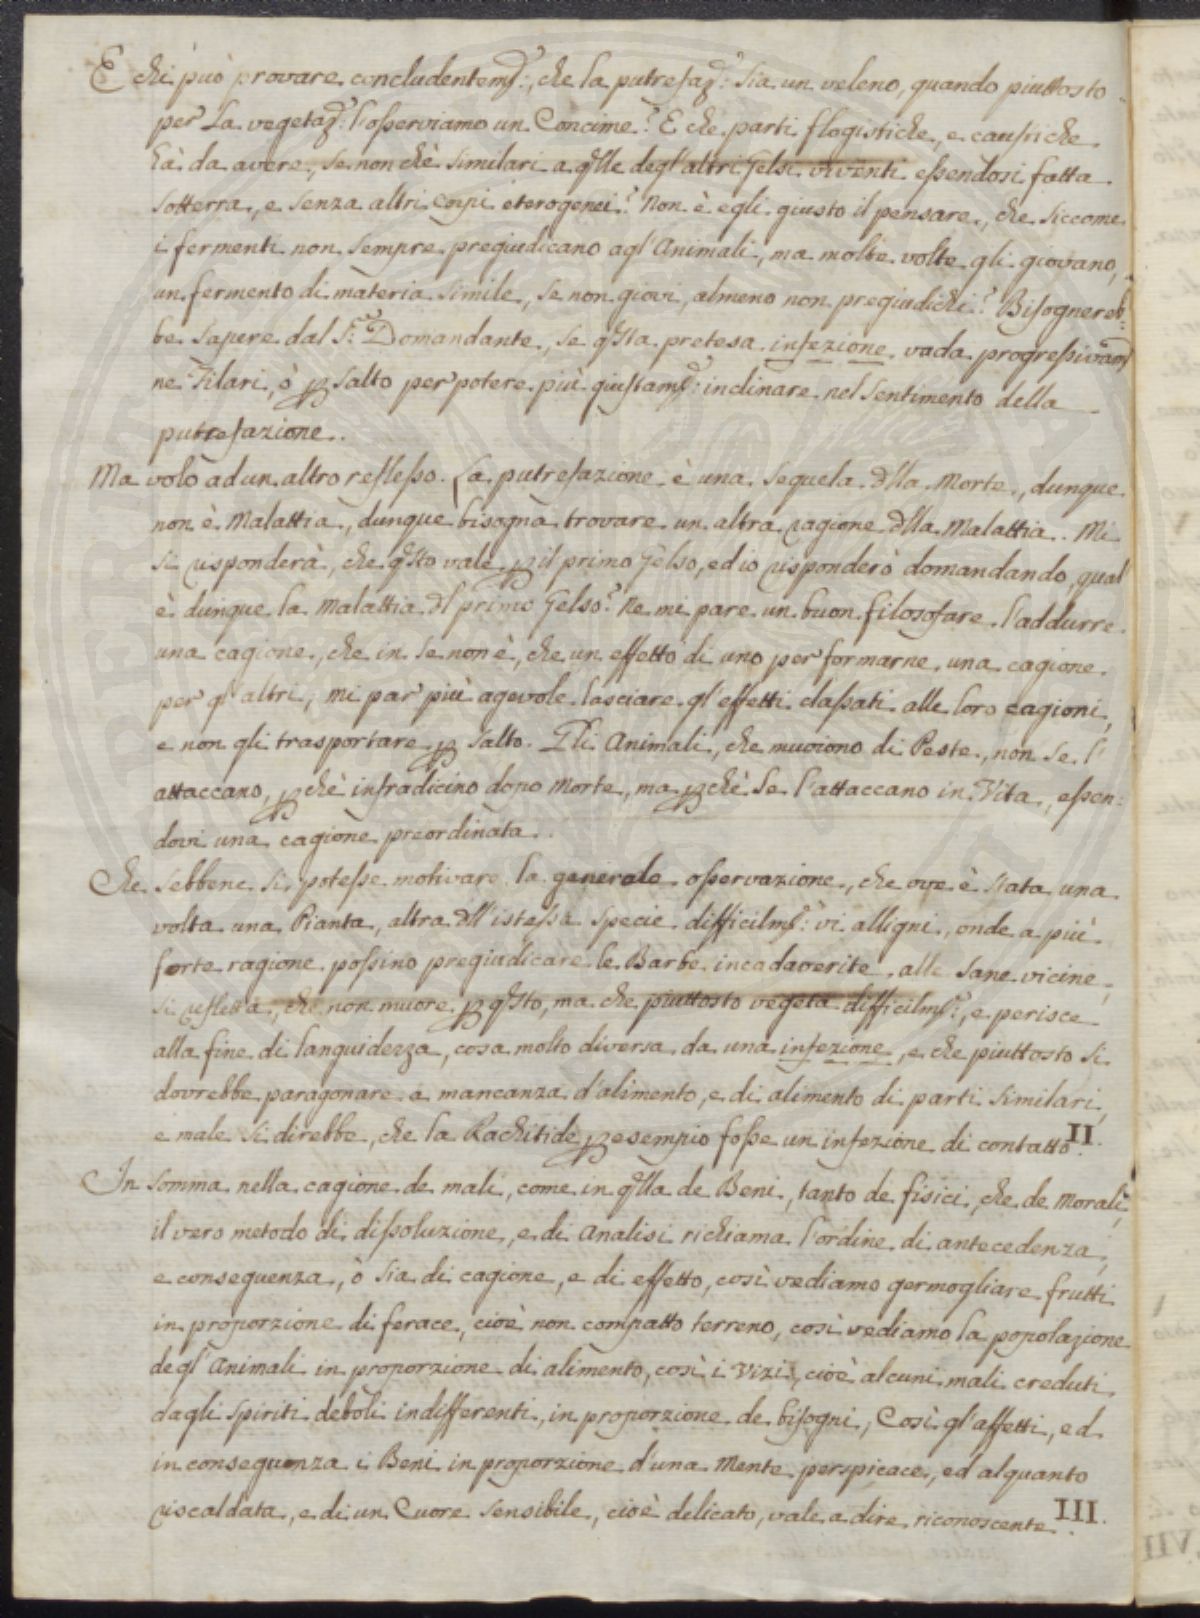 E chi può provare concludentemẽ:, che la putrefaz: sia un veleno, quando piuttosto
per la vegetaz: l'osserviamo un Concime? E che parti flogistiche, e caustiche
hà da avere, se non chè similari a qlle degl'altri Gelsi viventi essendosi fatta
sotterra, e senza altri corpi eterogenei? Non è egli giusto il pensare, che siccome
i fermenti non sempre pregiudicano agl'Animali, ma molte volte gli giovano,
un fermento di materia simile, se non giovi, almeno non pregiudichi? Bisognereb:
be sapere dal S: Domandante, se qsta pretesa infezione vada progressivam
ne Filari, ò p salto per potere più giustamẽ: inclinare nel sentimento della
putrefazione.
Ma volo ad un altro reflesso. La putrefazione è una sequela dlla Morte, dunque
non è Malattia, dunque bisogna trovare un altra cagione dlla Malattia. Mi
si risponderà, che qsto vale p il primo Gelso, ed io risponderò domandando, qual
è dunque la Malattia dl primo Gelso? Ne mi pare un buon filosofare l'addurre
una cagione, che in se non è, che un effetto di uno per formarne una cagione
per gl'altri, mi par più agevole lasciare gl'effetti classati alle loro cagioni,
e non gli trasportare p salto. Gli Animali, che muoiono di Peste, non se l'
attaccano, pchè infradicino dopo Morte, ma pchè se l'attaccano in Vita, essen:
dovi una cagione preordinata.
Che sebbene si potesse motivare la generale osservazione, che ove è stata una
volta una Pianta, altra dll'istessa specie difficilmẽ: vi alligni, onde a più
forte ragione possino pregiudicare le Barbe incadaverite alle sane vicine,
si refletta, che non muore p qsto, ma che piuttosto vegeta difficilmẽ:, e perisce
alla fine di languidezza, cosa molto diversa da una infezione, e che piuttosto si
dovrebbe paragonare a mancanza d'alimento, e di alimento di parti similari,
e male si direbbe, che la Rachitide p esempio fosse un infezione di contatto II.
In somma nella cagione de mali, come in qlla de Beni, tanto de fisici, che de Morali,
il vero metodo di dissoluzione, e di Analisi richiama l'ordine di antecedenza,
e conseguenza, ò sia di cagione, e di effetto, così vediamo germogliare frutti
in proporzione di ferace, cioè non compatto terreno, così vediamo la popolazione
degl'Animali in proporzione di alimento, così i Vizi, cioè alcuni mali creduti
dagli spiriti deboli indifferenti, in proporzione de bisogni, Così gl'affetti, ed
in conseguenza i Beni in proporzione d'una Mente perspicace, ed alquanto
riscaldata, e di un Cuore sensibile, cioè delicato, vale a dire riconoscente III.